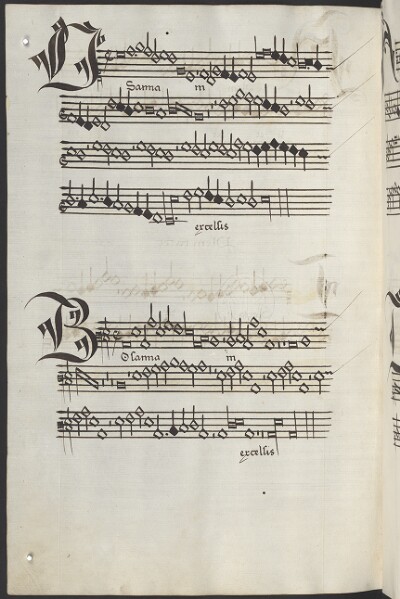 Sanna in
excelsis
Osanna in
excelsis